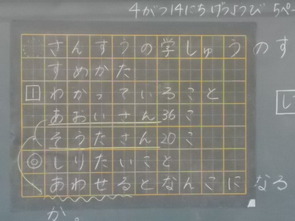 4がつ14にちげつようび 5ペー
さんすうの学しゅうのす
すめかた
1 わかっていること
あおいさん36こ
そうたさん20こ
◎ しりたいこと
あわせるとなんこになる
か。